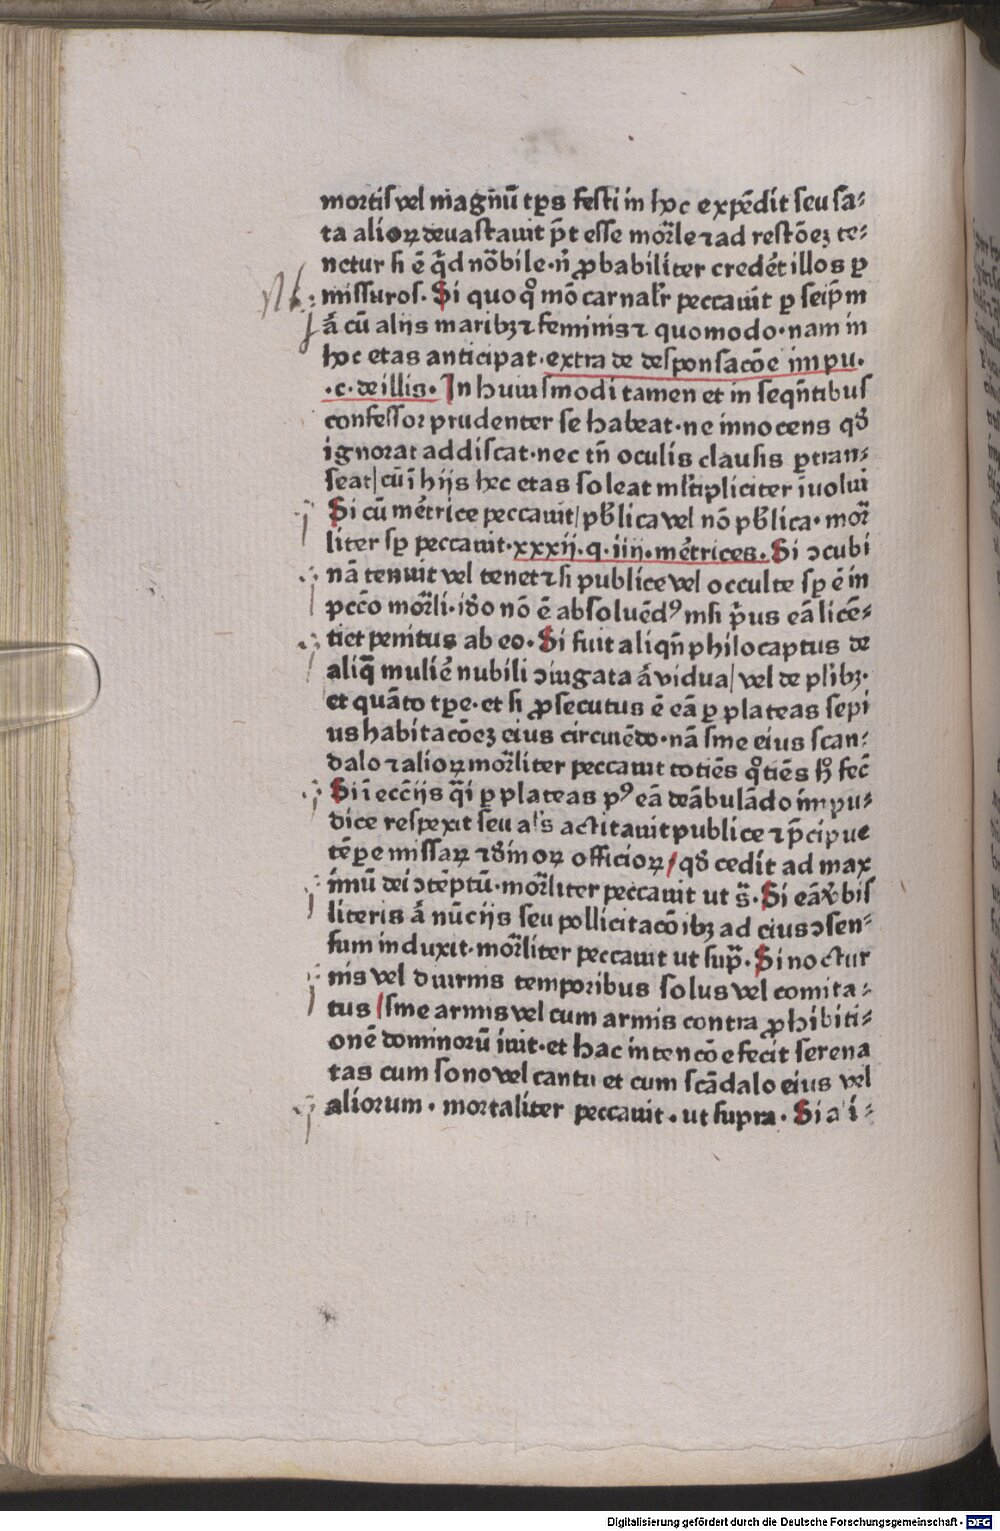 mortiſ vel magnũ tp̄s feſti in hoc expēdit ſeu ſa⸗
ta alioꝝ devaſtavit p̄t eſſe mor̄le ⁊ ad reſtōeꝫ te⸗
netur ſi ē q̄d nōbile · n̄ ꝓbabiliter credēt illos ꝑ
Nb miſſuroſ · Si quo qꝰ mō carnalr̄ peccavit ꝑ ſeip̄m
ā cū aliis maribꝫ ⁊ feminis ⁊ quomodo · nam in
hoc etas anticipat · extra de deſponſacōe inpu ·
· c · de illis · In huiuſmodi tamen et in ſeqn̄tibuſ
confeſſor prudenter ſe habeat · ne innocens qd̄
ignorat addiſcat · nec tn̄ oculis clauſis ꝑtran⸗
ſeat / cū ī hijs hec etas ſoleat ml̄tipliciter īuolui
Si cū mēt̄rice peccavit / pb̄lica vel nō pb̄lica · mor̄
liter ſꝑ peccavit · xxxij · q · iiij · mēt̄rices · Si ↄcubi
nā tenuit vel tenet ⁊ ſi publice vel occulte ſꝑ ē in
pccō mor̄li · id̄o nō ē abſoluēdꝰ niſi p̄us eā licē⸗
tiet penitus ab eo · Si fuit aliqn̄ philocaptus de
aliq̄ muliē nubili ↄiugata ā vidua / vel de pl̄ibꝫ ·
et quāto tꝑe · et ſi ꝓſecutus ē eā ꝑ plateas ſepi
us habitacōeꝫ eius circuiēdo · nā ſine eius ſcan⸗
dalo ⁊ alioꝝ mor̄liter peccavit totiēs qͦtiēs ħ fec̄
Si ī ecc̄ijs q̄i ꝑ plateas pꝰ eā deābulādo inpu⸗
dice reſpexit ſeu al̓s actitavit publice ⁊ p̄cipue
tēꝑe miſſaꝝ ⁊ d̄inoꝝ officioꝝ / qd̄ cedit ad max
imū dei ↄtēptū · mor̄liter peccavit ut s̄ · Si eā v̄biſ
literis ā nūcijs ſeu pollicitacōibꝫ ad eius ↄſen⸗
ſum induxit · mor̄liter peccavit ut ſupͣ · Si noctur
nis vel diurnis temporibus ſolus vel comita⸗
tus / ſine armis vel cum armis contra ꝓhibiti⸗
onē dominorū ivit · et hac intencōe fecit ſerena
tas cum ſono vel cantu et cum ſcādalo eius vel
aliorum · mortaliter peccavit · ut ſupra · Si ai⸗
Digitalisierung gefördert durch die Deutsche Forschungsgemeinschaft - DFG